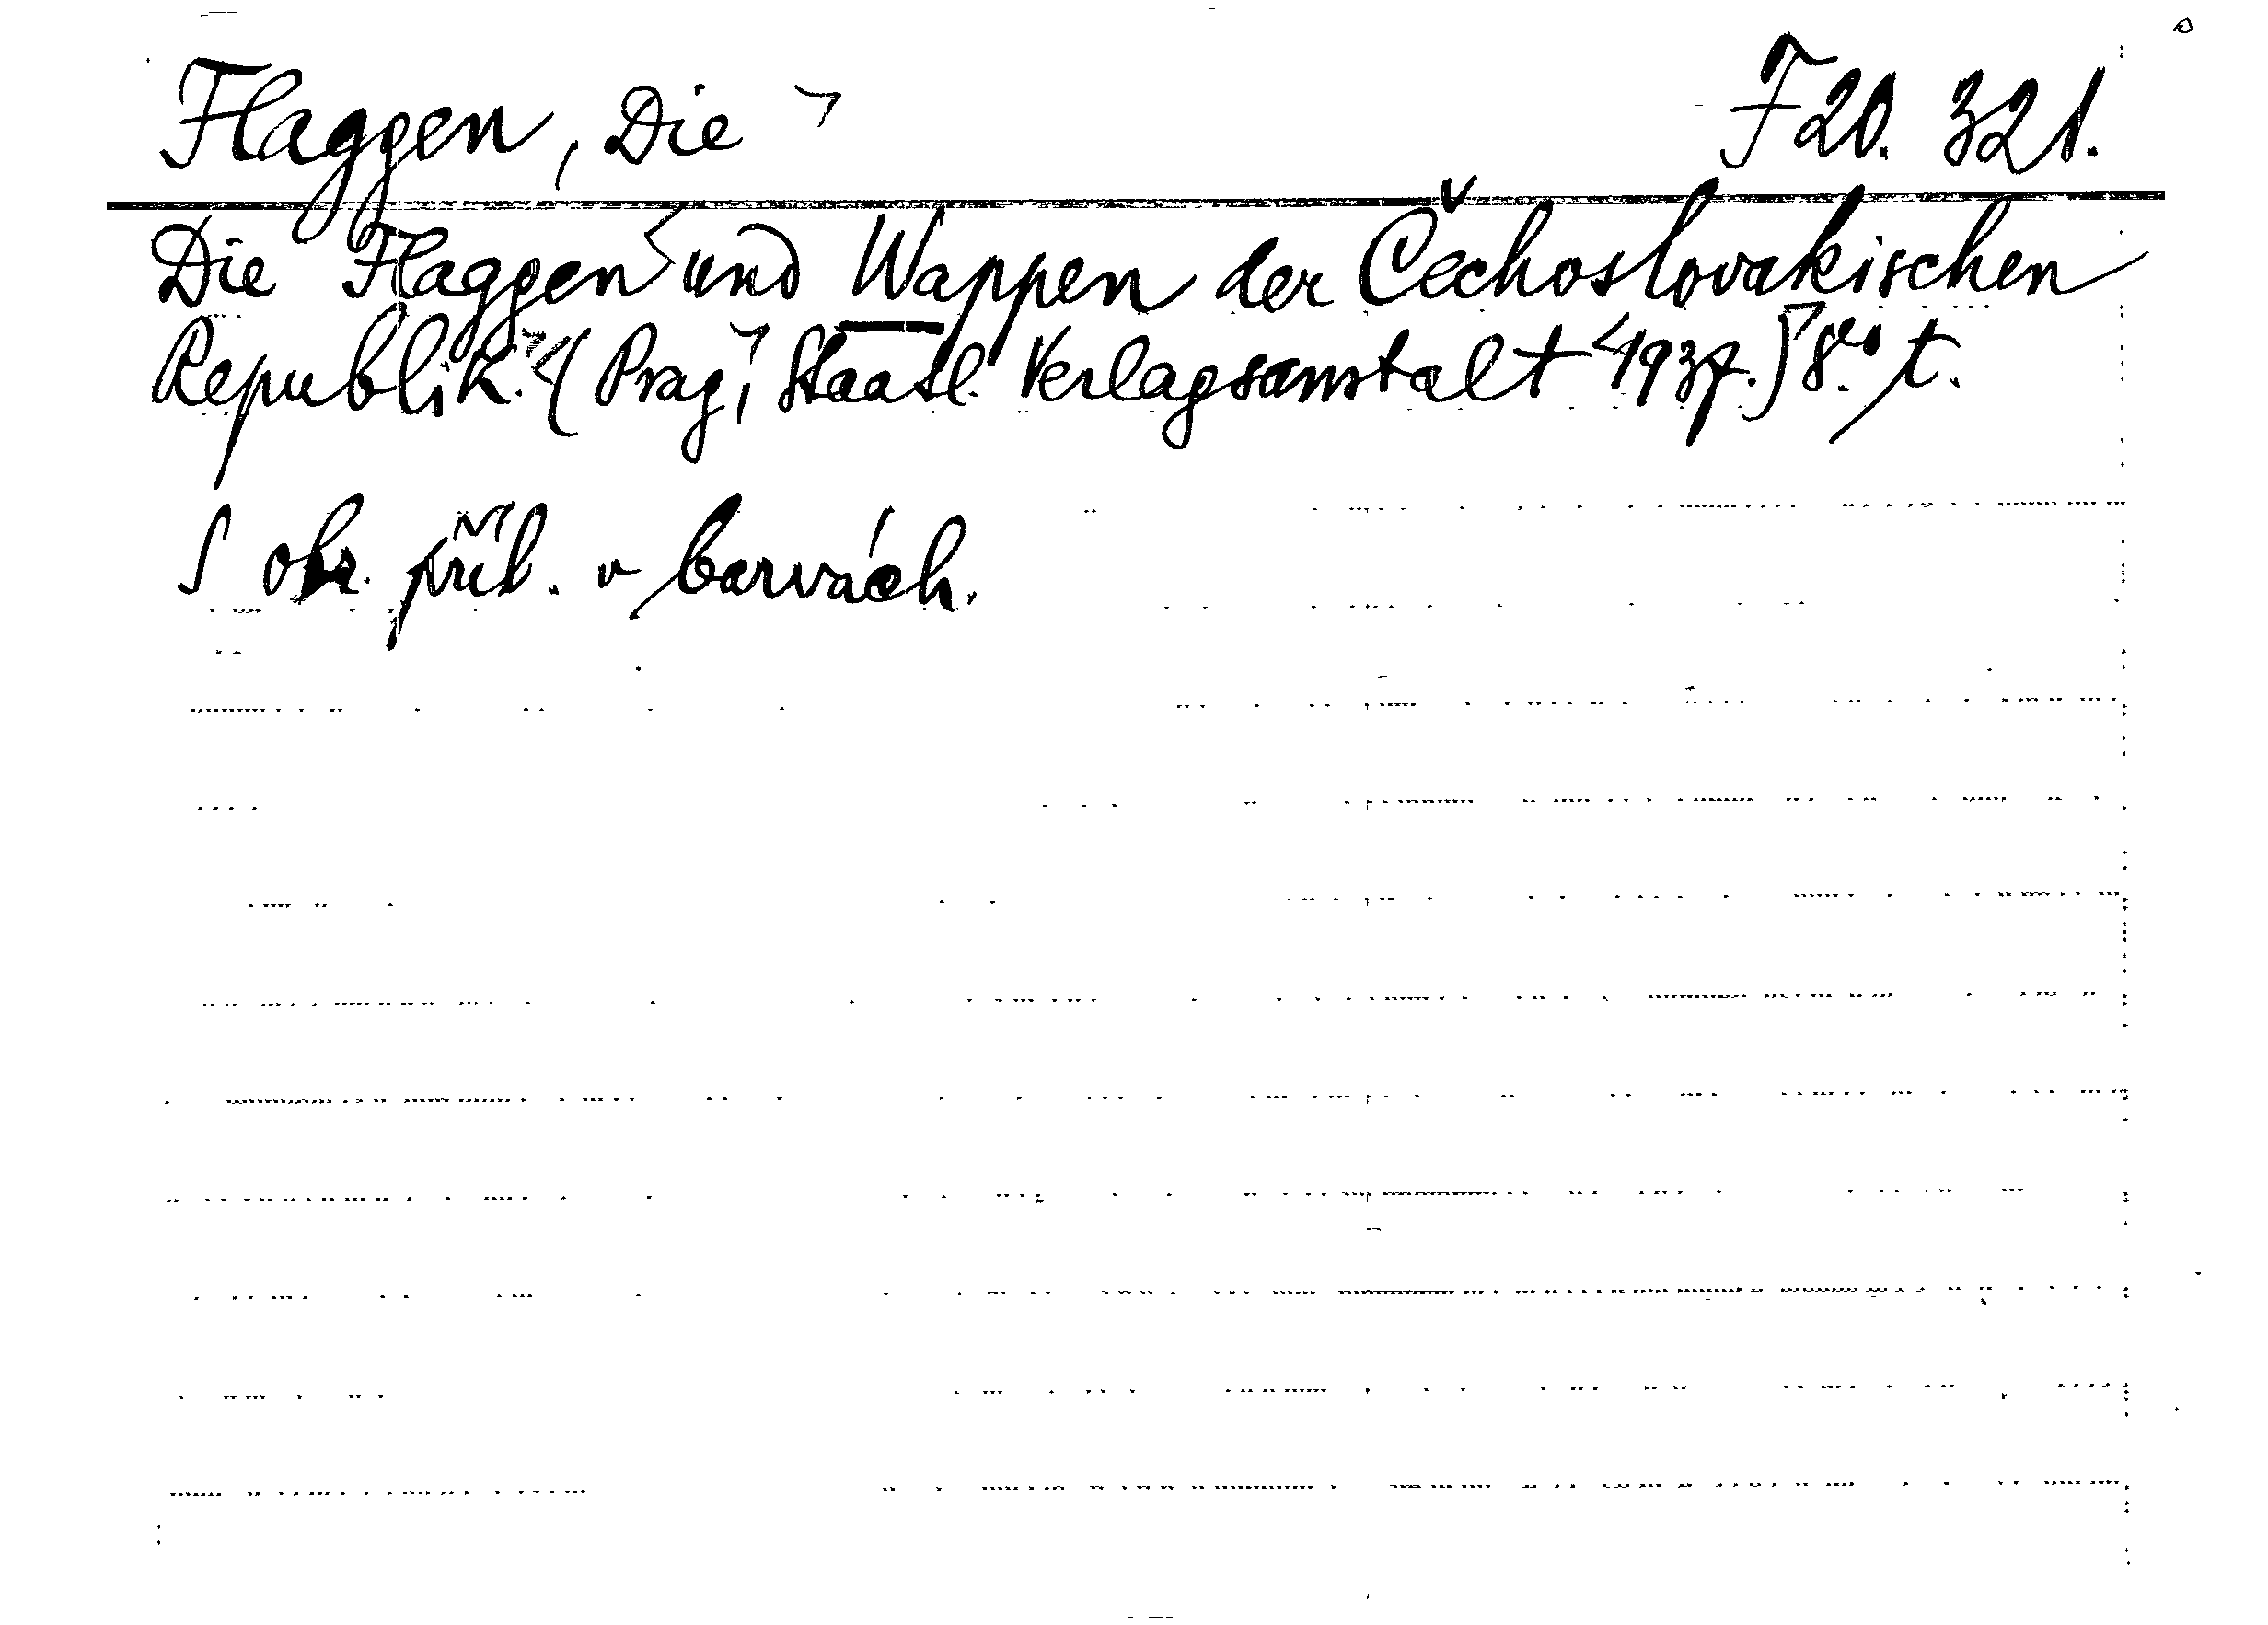 Flaggen, Die F 20. 321.
Die Flaggen und Wappen der Čechoslovakischen
Republik. (Prag, Staatl. Verlagsanstalt 1937.) 8° t.
S obr. příl. v barvách.